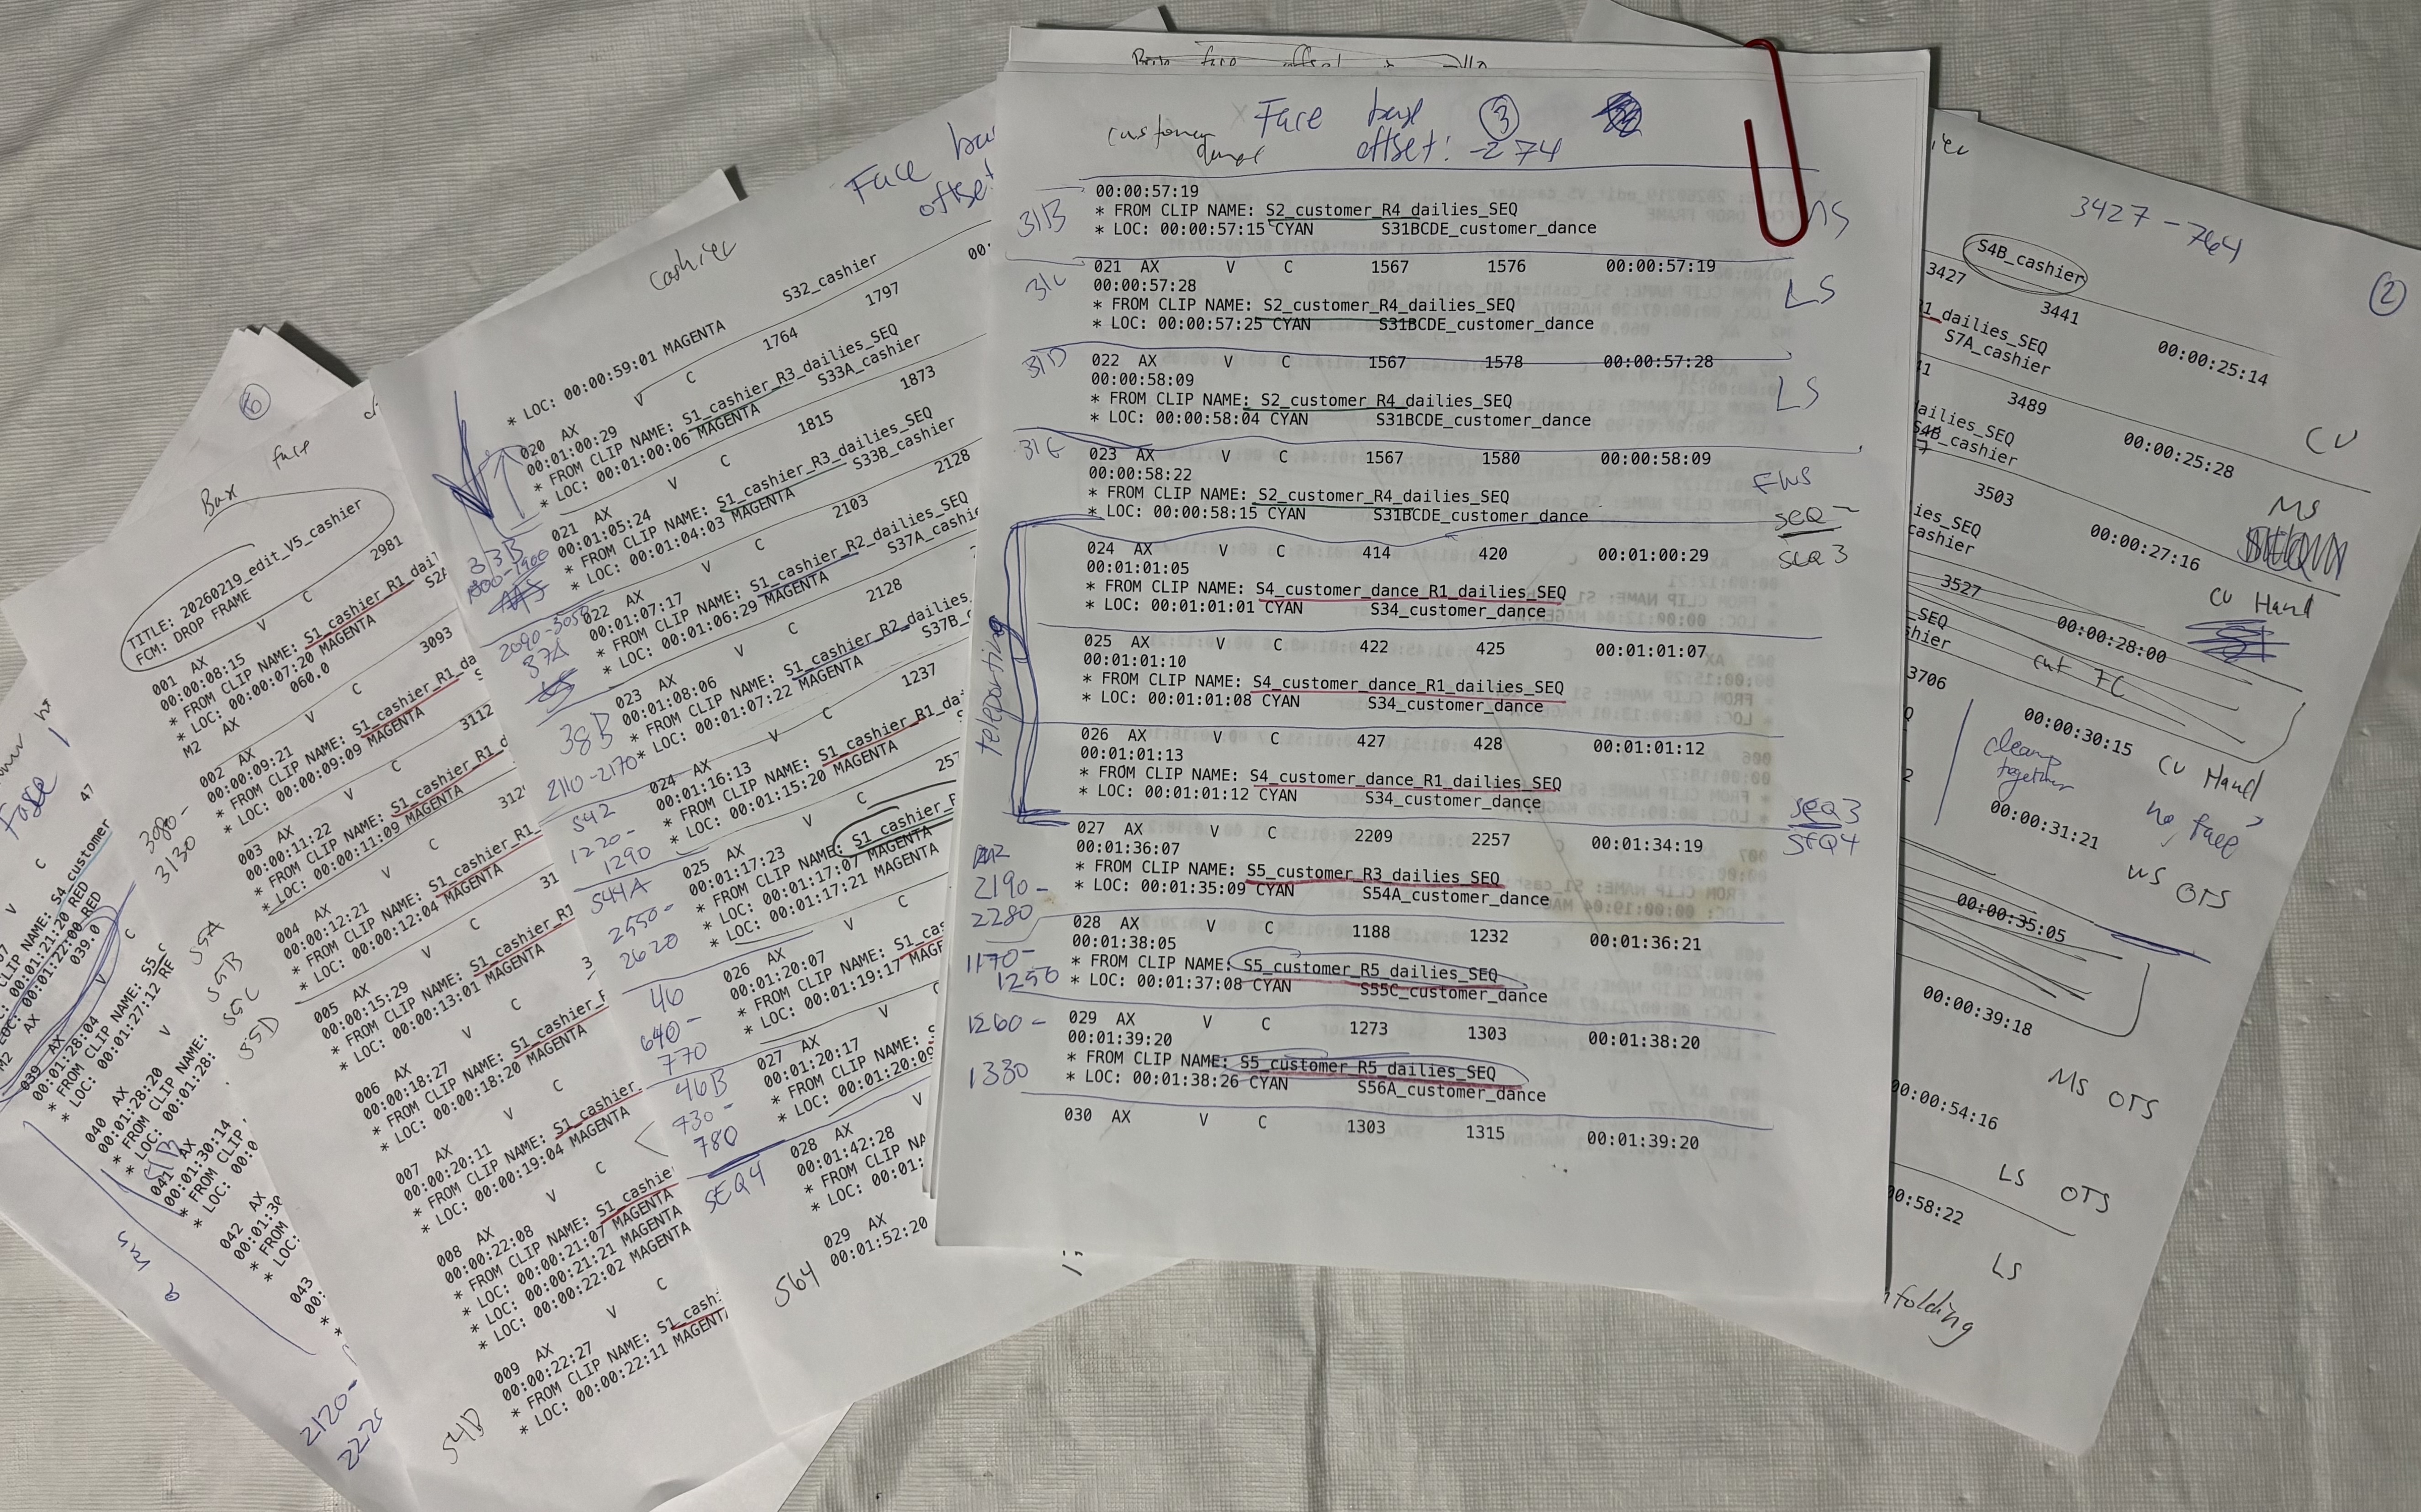 customer Face base ③
offset: -274
00:00:57:19
31B * FROM CLIP NAME: S2_customer_R4_dailies_SEQ MS
* LOC: 00:00:57:15 CYAN S31BCDE_customer_dance
31C 021 AX V C 1567 1576 00:00:57:19 LS
00:00:57:28
* FROM CLIP NAME: S2_customer_R4_dailies_SEQ
* LOC: 00:00:57:25 CYAN S31BCDE_customer_dance
31D 022 AX V C 1567 1578 00:00:57:28
00:00:58:09 LS
* FROM CLIP NAME: S2_customer_R4_dailies_SEQ
* LOC: 00:00:58:04 CYAN S31BCDE_customer_dance
31E 023 AX V C 1567 1580 00:00:58:09
00:00:58:22 FWS
* FROM CLIP NAME: S2_customer_R4_dailies_SEQ
* LOC: 00:00:58:15 CYAN S31BCDE_customer_dance SEQ
024 AX V C 414 420 00:01:00:29 SEQ 3
00:01:01:05
* FROM CLIP NAME: S4_customer_dance_R1_dailies_SEQ
* LOC: 00:01:01:01 CYAN S34_customer_dance
teleporting
025 AX V C 422 425 00:01:01:07
00:01:01:10
* FROM CLIP NAME: S4_customer_dance_R1_dailies_SEQ
* LOC: 00:01:01:08 CYAN S34_customer_dance
026 AX V C 427 428 00:01:01:12
00:01:01:13
* FROM CLIP NAME: S4_customer_dance_R1_dailies_SEQ
* LOC: 00:01:01:12 CYAN S34_customer_dance SEQ 3
027 AX V C 2209 2257 00:01:34:19 SEQ4
00:01:36:07
2190- * FROM CLIP NAME: S5_customer_R3_dailies_SEQ
2280 * LOC: 00:01:35:09 CYAN S54A_customer_dance
028 AX V C 1188 1232 00:01:36:21
00:01:38:05
1170- * FROM CLIP NAME: S5_customer_R5_dailies_SEQ
1250 * LOC: 00:01:37:08 CYAN S55C_customer_dance
1260- 029 AX V C 1273 1303 00:01:38:20
00:01:39:20
* FROM CLIP NAME: S5_customer_R5_dailies_SEQ
1330 * LOC: 00:01:38:26 CYAN S56A_customer_dance
030 AX V C 1303 1315 00:01:39:20
Face
offset
cashier
S32_cashier
* LOC: 00:00:59:01 MAGENTA
V C 1764 1797
020 AX
00:01:00:29
* FROM CLIP NAME: S1_cashier_R3_dailies_SEQ
* LOC: 00:01:00:06 MAGENTA S33A_cashier
V C 1815 1873
021 AX
00:01:05:24
* FROM CLIP NAME: S1_cashier_R3_dailies_SEQ
* LOC: 00:01:04:03 MAGENTA S33B_cashier
33B
V C 2103 2128
022 AX
00:01:07:17
* FROM CLIP NAME: S1_cashier_R2_dailies_SEQ
* LOC: 00:01:06:29 MAGENTA
37A
V C 2128
023 AX
00:01:08:06
* FROM CLIP NAME: S1_cashier_R2_dailies
* LOC: 00:01:07:22 MAGENTA
38B
2110-2170
V C 1237
024 AX
00:01:16:13
* FROM CLIP NAME: S1_cashier_R1
* LOC: 00:01:15:20 MAGENTA
S42
1220-
1290
025 AX V C
00:01:17:23
* FROM CLIP NAME: S1_cashier
* LOC: 00:01:17:07 MAGENTA
* LOC: 00:01:17:21 MAGENTA
S44A
2550-
2620
026 AX V C
00:01:20:07
* FROM CLIP NAME: S1
* LOC: 00:01:19:17
46
640-
770
027 AX V C
00:01:20:17
* FROM CLIP NAME:
* LOC: 00:01:20:09
46B
730-
780
SEQ4
028 AX V
00:01:42:28
* FROM CLIP
* LOC: 00:01:
029 AX
00:01:52:20
S64
face
Box
TITLE: 20260219_edit_V5_cashier
FCM: DROP FRAME
001 AX V C 2981
00:00:08:15
* FROM CLIP NAME: S1_cashier_R1
* LOC: 00:00:07:20 MAGENTA
M2 AX 060.0
002 AX V C 3093
00:00:09:21
* FROM CLIP NAME: S1_cashier_R1
* LOC: 00:00:09:09 MAGENTA
3080-
3130
003 AX V C 3112
00:00:11:22
* FROM CLIP NAME: S1_cashier_R1
* LOC: 00:00:11:09 MAGENTA
004 AX V C
00:00:12:21
* FROM CLIP NAME: S1_cashier_R1
* LOC: 00:00:12:04 MAGENTA
005 AX V C
00:00:15:29
* FROM CLIP NAME: S1_cashier_R1
* LOC: 00:00:13:01 MAGENTA
006 AX V C
00:00:18:27
* FROM CLIP NAME: S1_cashier
* LOC: 00:00:18:20 MAGENTA
007 AX V C
00:00:20:11
* FROM CLIP NAME: S1_cashier
* LOC: 00:00:19:04 MAGENTA
008 AX V C
00:00:22:08
* FROM CLIP NAME: S1_cashie
* LOC: 00:00:21:07 MAGENTA
* LOC: 00:00:21:21 MAGENTA
* LOC: 00:00:22:02 MAGENTA
009 AX V C
00:00:22:27
* FROM CLIP NAME: S1_cash
* LOC: 00:00:22:11 MAGENTA
54B
CLIP NAME: S4_customer
00:01:21:20 RED
00:01:22:00 RED
M2 AX 039.0
039 AX V C
00:01:28:04
* FROM CLIP NAME: S5
* LOC: 00:01:27:12
55A
55B
55C
55D
040 AX V
00:01:28:20
* FROM CLIP NAME:
* LOC: 00:01:28:
041 AX
00:01:30:14
* FROM CLIP
* LOC: 00:0
042 AX
* FROM
* LOC:
043
2120-
3427-764
②
S4B_cashier
3427 3441 00:00:25:14
dailies_SEQ
S7A_cashier CU
3489 00:00:25:28
dailies_SEQ
MS
3503 00:00:27:16
CU Hand
3527 00:00:28:00
cut 7C
3706 00:00:30:15 CU Hand
cleanup
together
no face?
00:00:31:21 WS OTS
00:00:35:05
00:00:39:18 MS OTS
00:00:54:16 LS OTS
00:58:22 LS
folding